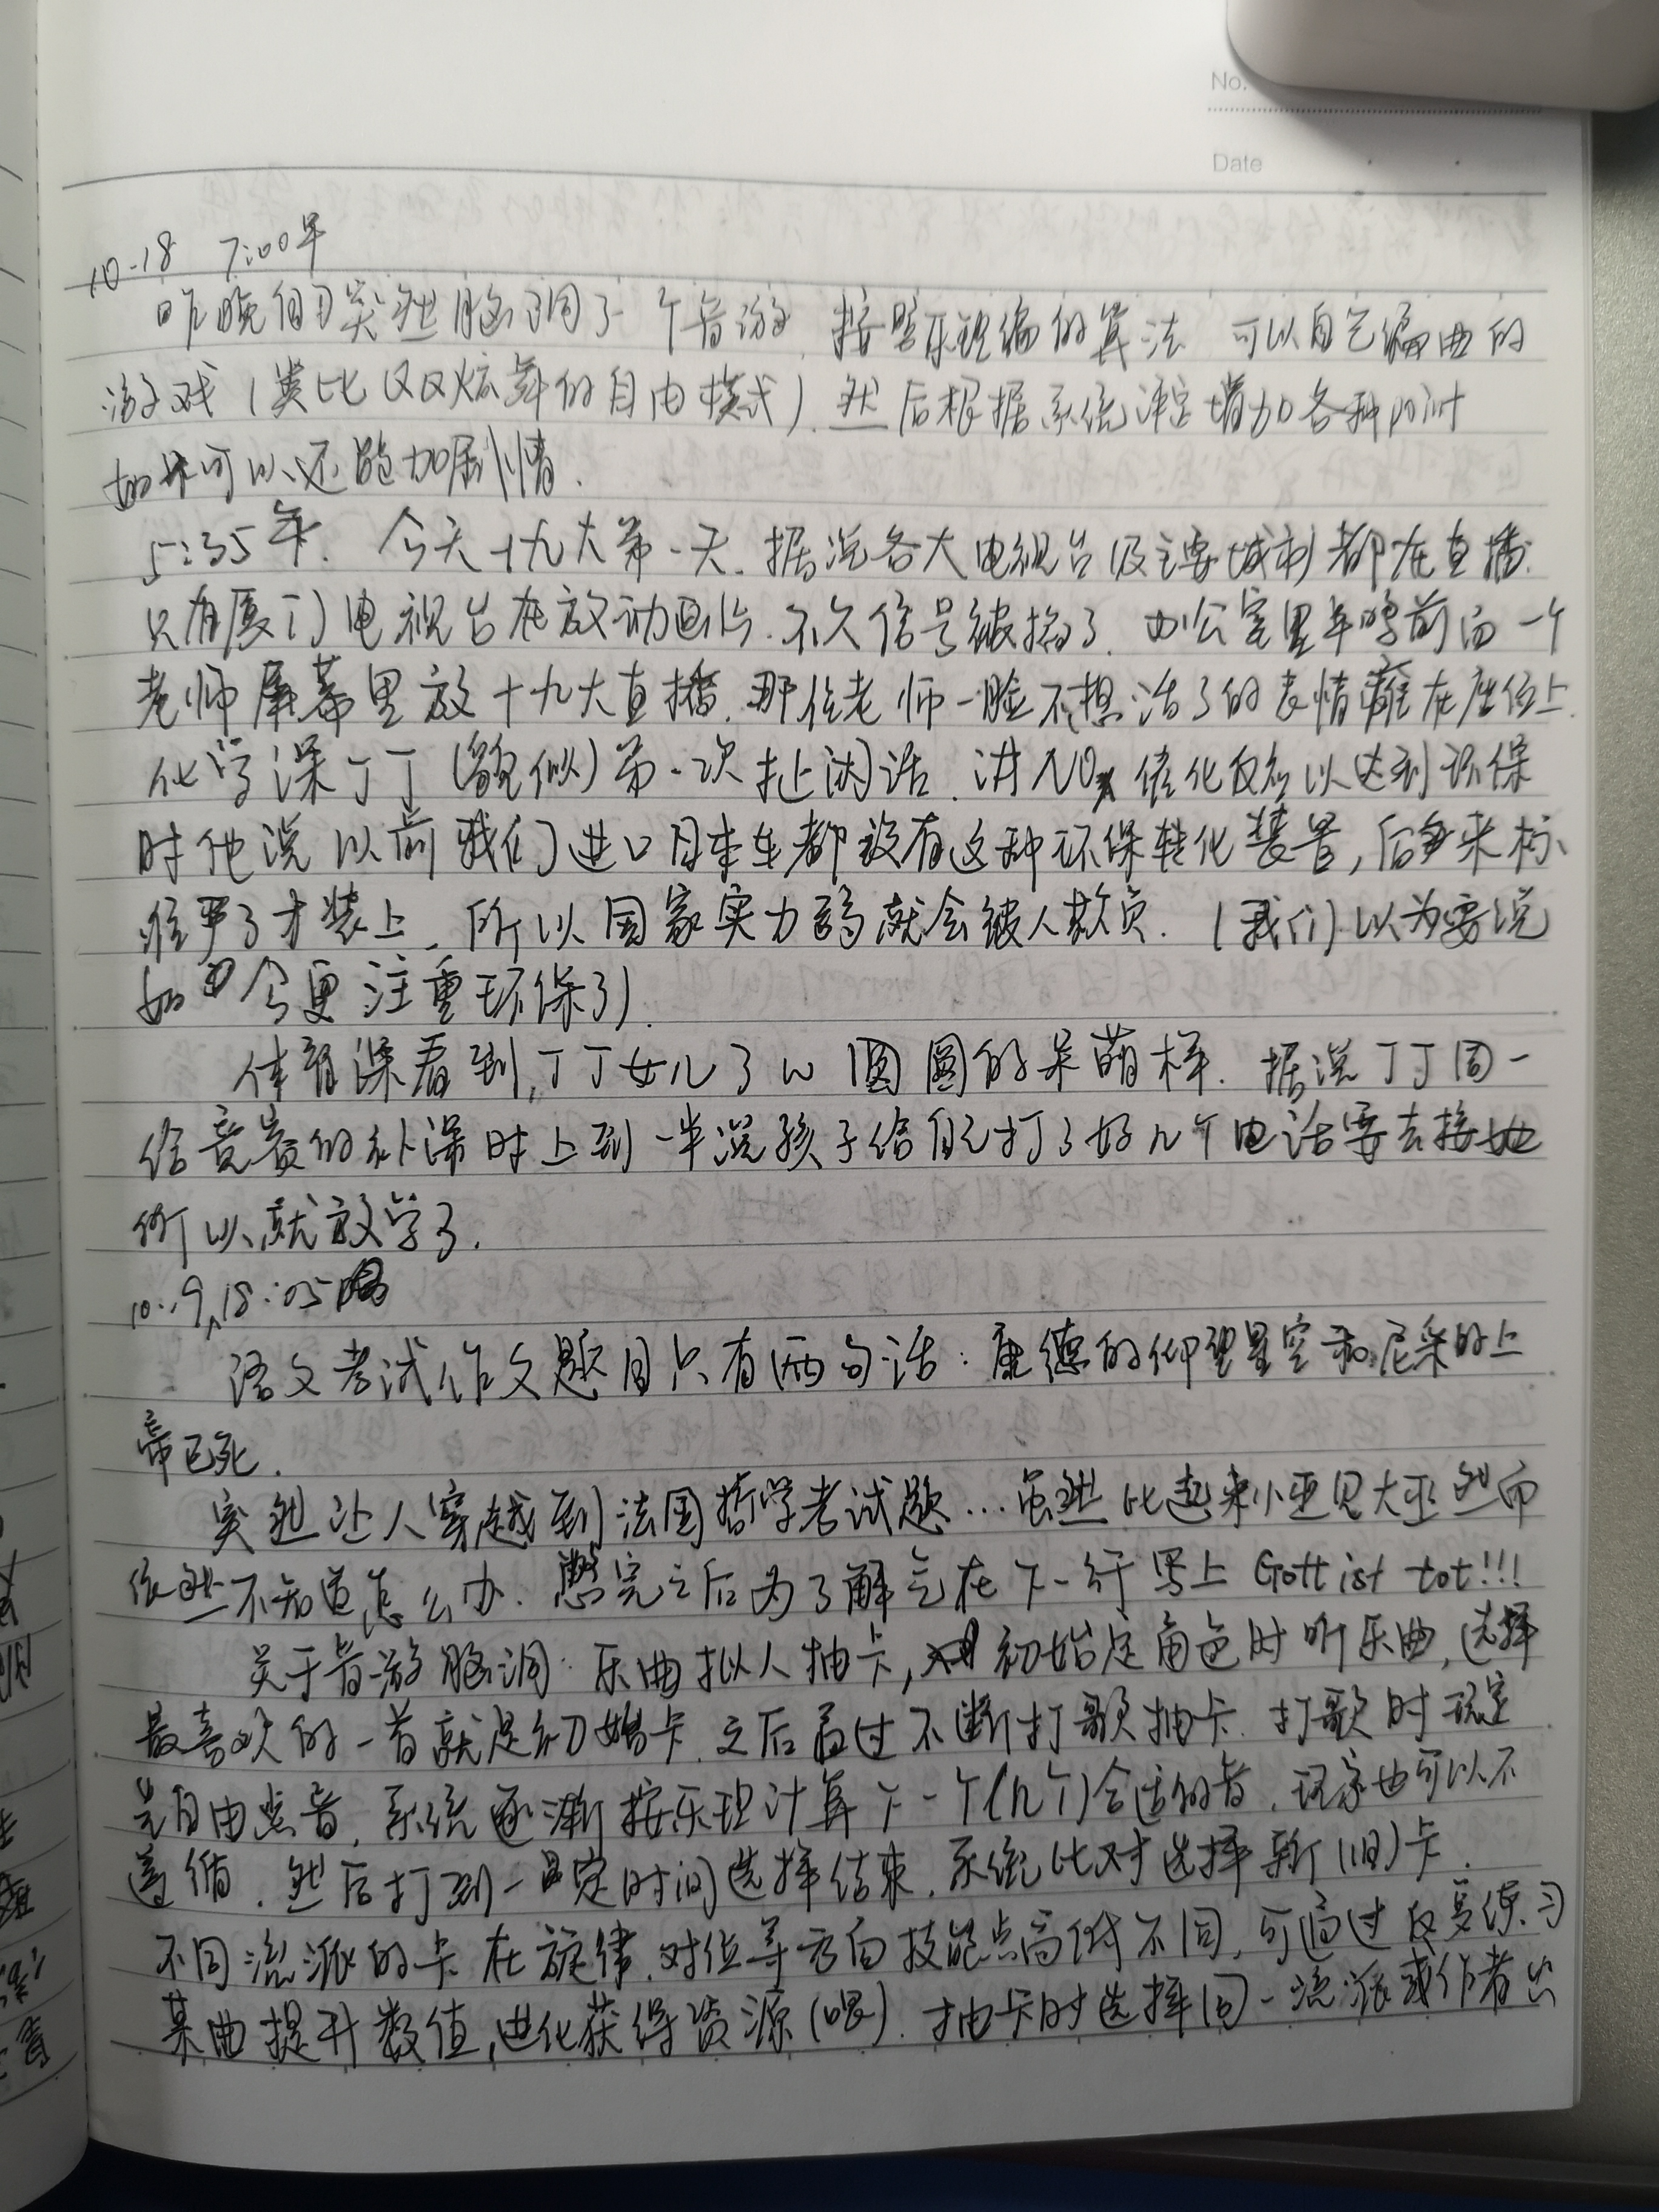 No.
Date
10-18 7:00早
昨晚自习突然脑洞了一个音游,按照乐理编的算法 可以自己编曲的
游戏(类比QQ炫舞的自由模式).然后根据系统评定增加各种point
如果可以还能加剧情.
5:35 今天十九大第一天.据说各大电视台及主要城市都在直播.
只有厦门电视台在放动画片.不久信号被掐了.办公室里年级前面一个
老师屏幕里放十九大直播.那位老师一脸不想活了的表情瘫在座位上.
化学课丁丁(貌似)第一次扯闲话.讲NOx催化反应以达到环保
时他说以前我们进口日本车都没有这种环保转化装置,后来标
准严了才装上.所以国家实力弱就会被人欺负.(我们以为要说
如今更注重环保了).
体育课看到丁丁女儿了w 圆圆的呆萌样.据说丁丁周一
给竞赛的补课时上到一半说孩子给自己打了好几个电话要去接她
所以就放学了.
10.19,18:05
语文考试作文题目只有两句话:康德的仰望星空和尼采的上
帝已死.
突然让人穿越到法国哲学考试题…虽然比起来小巫见大巫然而
依然不知道怎么办.憋完之后为了解气在下一行写上 Gott ist tot!!!
关于音游脑洞:乐曲拟人抽卡,初始定角色时听乐曲,选择
最喜欢的一首就是初始卡.之后通过不断打歌抽卡.打歌时
先自由点音,系统逐渐按乐理计算下一个(几个)合适的音.玩家也可以不
遵循.然后打到一定时间选择结束.系统比对选择新(旧)卡.
不同流派的卡在旋律.对位等方向技能点高低不同,可通过反复练习
某曲提升数值,进化获得资源(喂).抽卡时选择同一流派或作者出